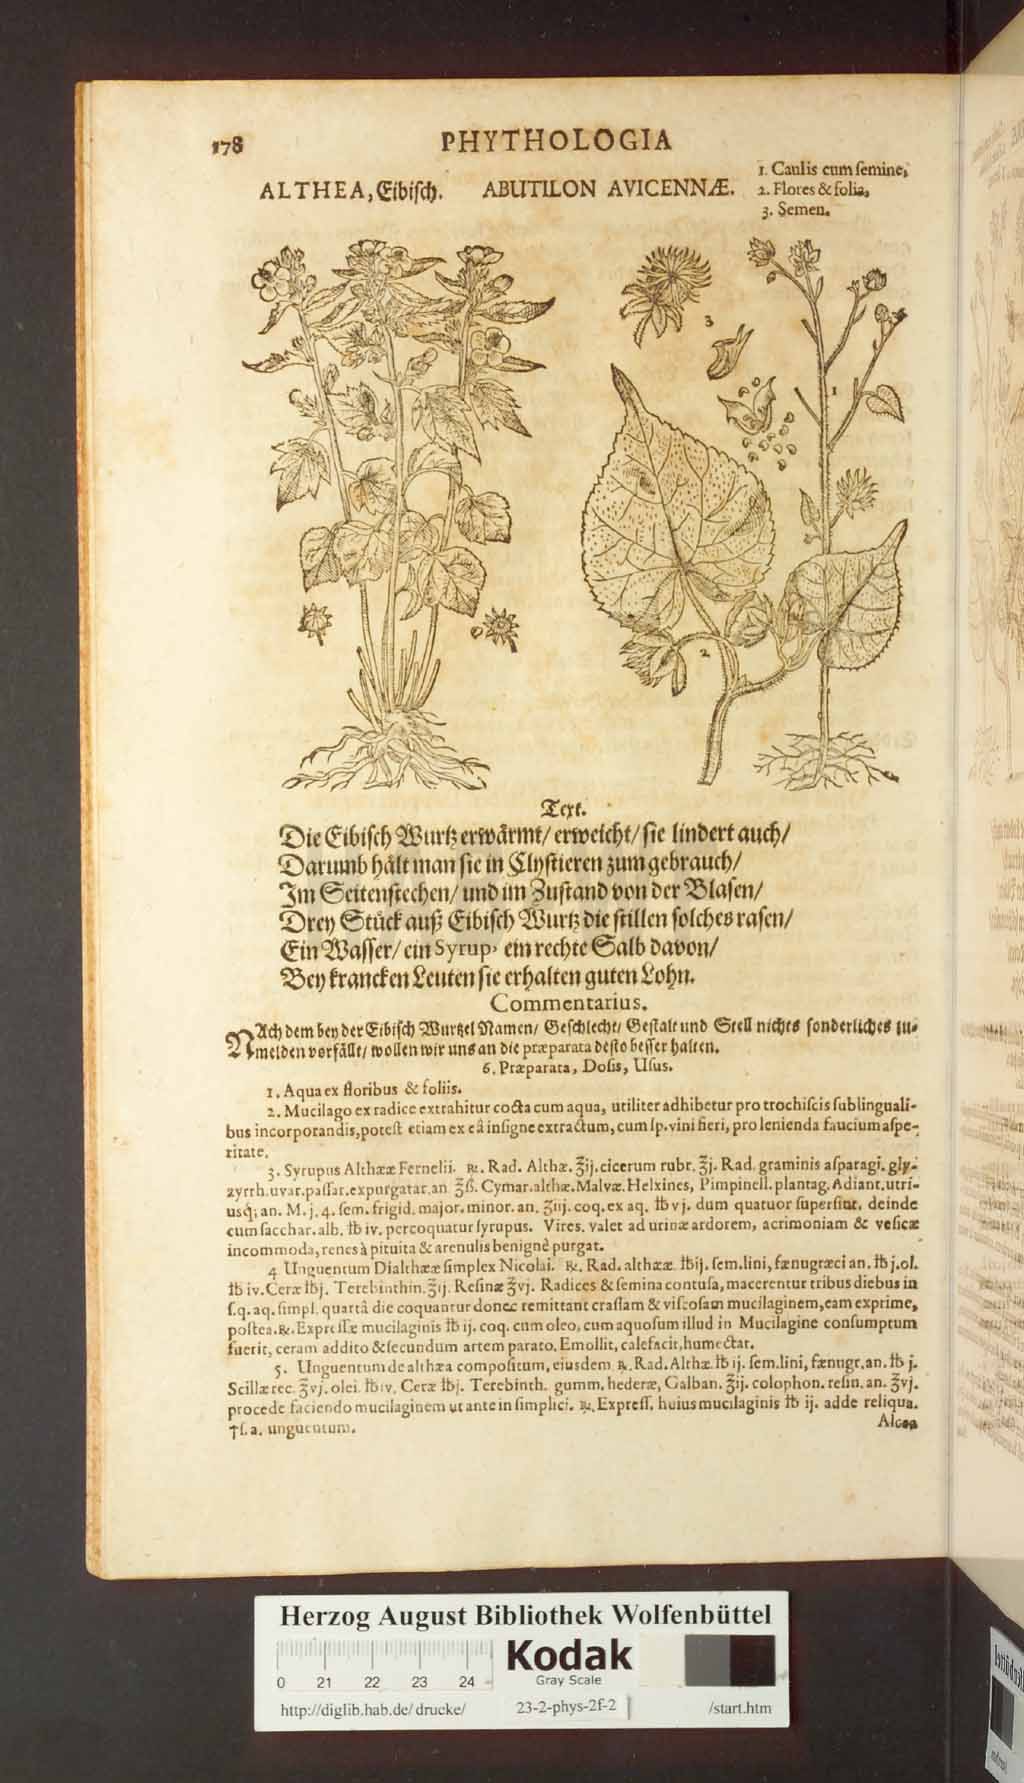 178 PHYTHOLOGIA
ALTHEA, Eibiſch. ABUTILON AVICENNÆ.
1. Caulis cum ſemine,
2. Flores & folia,
3. Semen.
3
1
2
Text.
Die Eibiſch Wurtz erwärmt/ erweicht/ ſie lindert auch/
Darumb hält man ſie in Clyſtieren zum gebrauch/
Im Seitenſtechen/ und im Zuſtand von der Blaſen/
Drey Stück auß Eibiſch Wurtz die ſtillen ſolches raſen/
Ein Waſſer/ ein Syrup, ein rechte Salb davon/
Bey krancken Leuten ſie erhalten guten Lohn.
Commentarius.
NAch dem bey der Eibiſch Wurtzel Namen/ Geſchlecht/ Geſtalt und Stell nichts ſonderliches zu-
melden vorfällt/ wollen wir uns an die præparata deſto beſſer halten.
6. Præparata, Doſis, Uſus.
1. Aqua ex floribus & foliis.
2. Mucilago ex radice extrahitur cocta cum aqua, utiliter adhibetur pro trochiſcis ſublinguali-
bus incorporandis, poteſt etiam ex eâ inſigne extractum, cum ſp. vini fieri, pro lenienda faucium aſpe-
ritate.
3. Syrupus Althææ Fernelii. ℞. Rad. Althæ. ℥ij. cicerum rubr. ℥j. Rad. graminis aſparagi. gly-
zyrrh. uvar. paſſar. expurgatar. an ℥ß. Cymar. althæ. Malvæ. Helxines, Pimpinell. plantag. Adiant. utri-
usq; an. M. j. 4. ſem. frigid. major. minor. an. ʒiij. coq. ex aq. ℔ vj. dum quatuor ſuperſint, deinde
cum ſacchar. alb. ℔ iv. percoquatur ſyrupus. Vires. valet ad urinæ ardorem, acrimoniam & veſicæ
incommoda, renes à pituita & arenulis benignè purgat.
4 Unguentum Dialthææ ſimplex Nicolai. ℞. Rad. althææ. ℔ij. ſem. lini, fænugræci an. ℔ j. ol.
℔ iv. Ceræ ℔j. Terebinthin. ℥ij. Reſinæ ℥vj. Radices & ſemina contuſa, macerentur tribus diebus in
ſ. q. aq. ſimpl. quartâ die coquantur donec remittant craſſam & viſcoſam mucilaginem, eam exprime,
poſtea. ℞. Expreſſæ mucilaginis ℔ ij. coq. cum oleo, cum aquoſum illud in Mucilagine conſumptum
fuerit, ceram addito & ſecundum artem parato. Emollit, calefacit, humectat.
5. Unguentum de althæa compoſitum, eiusdem ℞. Rad. Althæ. ℔ ij. ſem. lini, fænugr. an. ℔ j.
Scillæ rec. ℥vj. olei. ℔ iv. Ceræ ℔j. Terebinth. gumm. hederæ, Galban. ℥ij. colophon. reſin. an. ℥vj.
procede faciendo mucilaginem ut ante in ſimplici. ℞. Expreſſ. huius mucilaginis ℔ ij. adde reliqua.
†ſ. a. unguentum.
Alcea
Herzog August Bibliothek Wolfenbüttel
0 21 22 23 24
Kodak
Gray Scale
http://diglib.hab.de/drucke/ 23-2-phys-2f-2 /start.htm